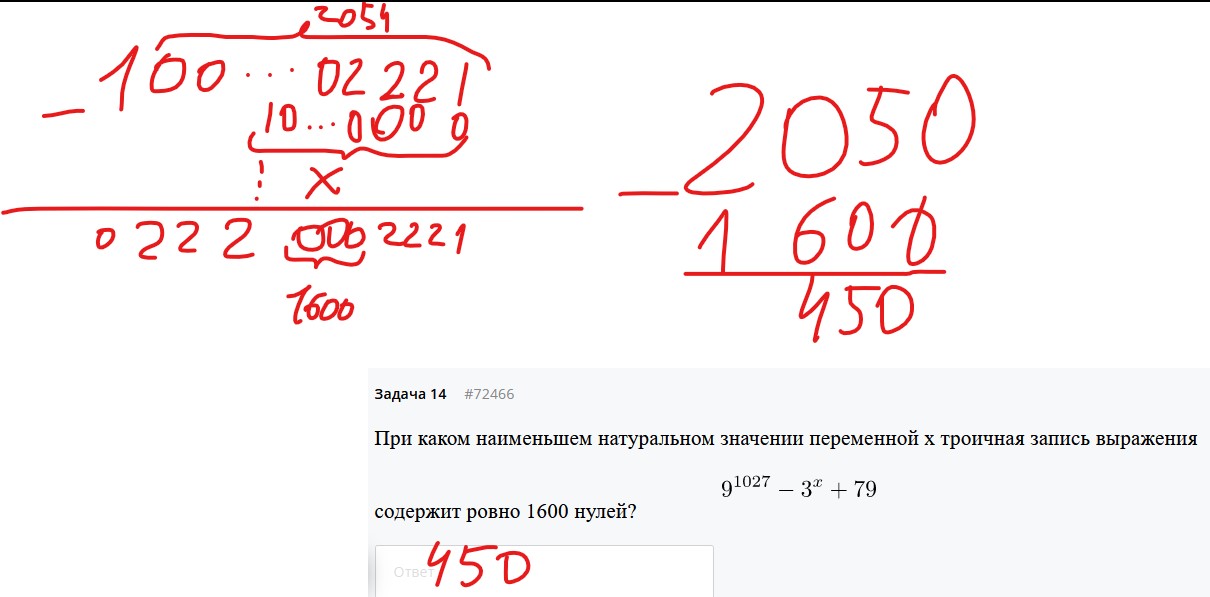 2054
− 100 ... 02221
10...0000
x
0 2 2 2 000 2221
1600
2050
−
1600
450
Задача 14 #72466
При каком наименьшем натуральном значении переменной x троичная запись выражения
9^1027 − 3^x + 79
содержит ровно 1600 нулей?
Ответ
450